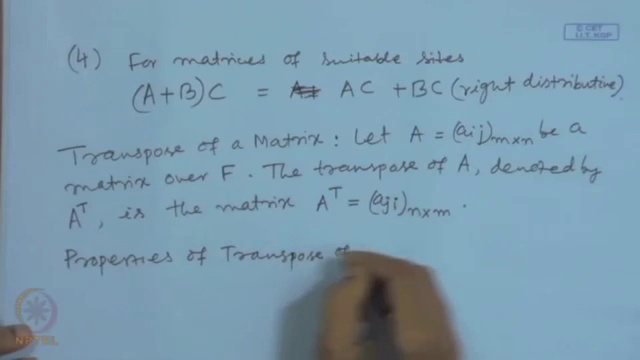 © CET
I.I.T. KGP
(4) For matrices of suitable sites
(A+B)C = AC + BC (right distributive)
Transpose of a Matrix : Let A = (aij)m×n be a
matrix over F. The transpose of A, denoted by
A^T, is the matrix A^T = (aji)n×m.
Properties of Transpose of
NPTEL